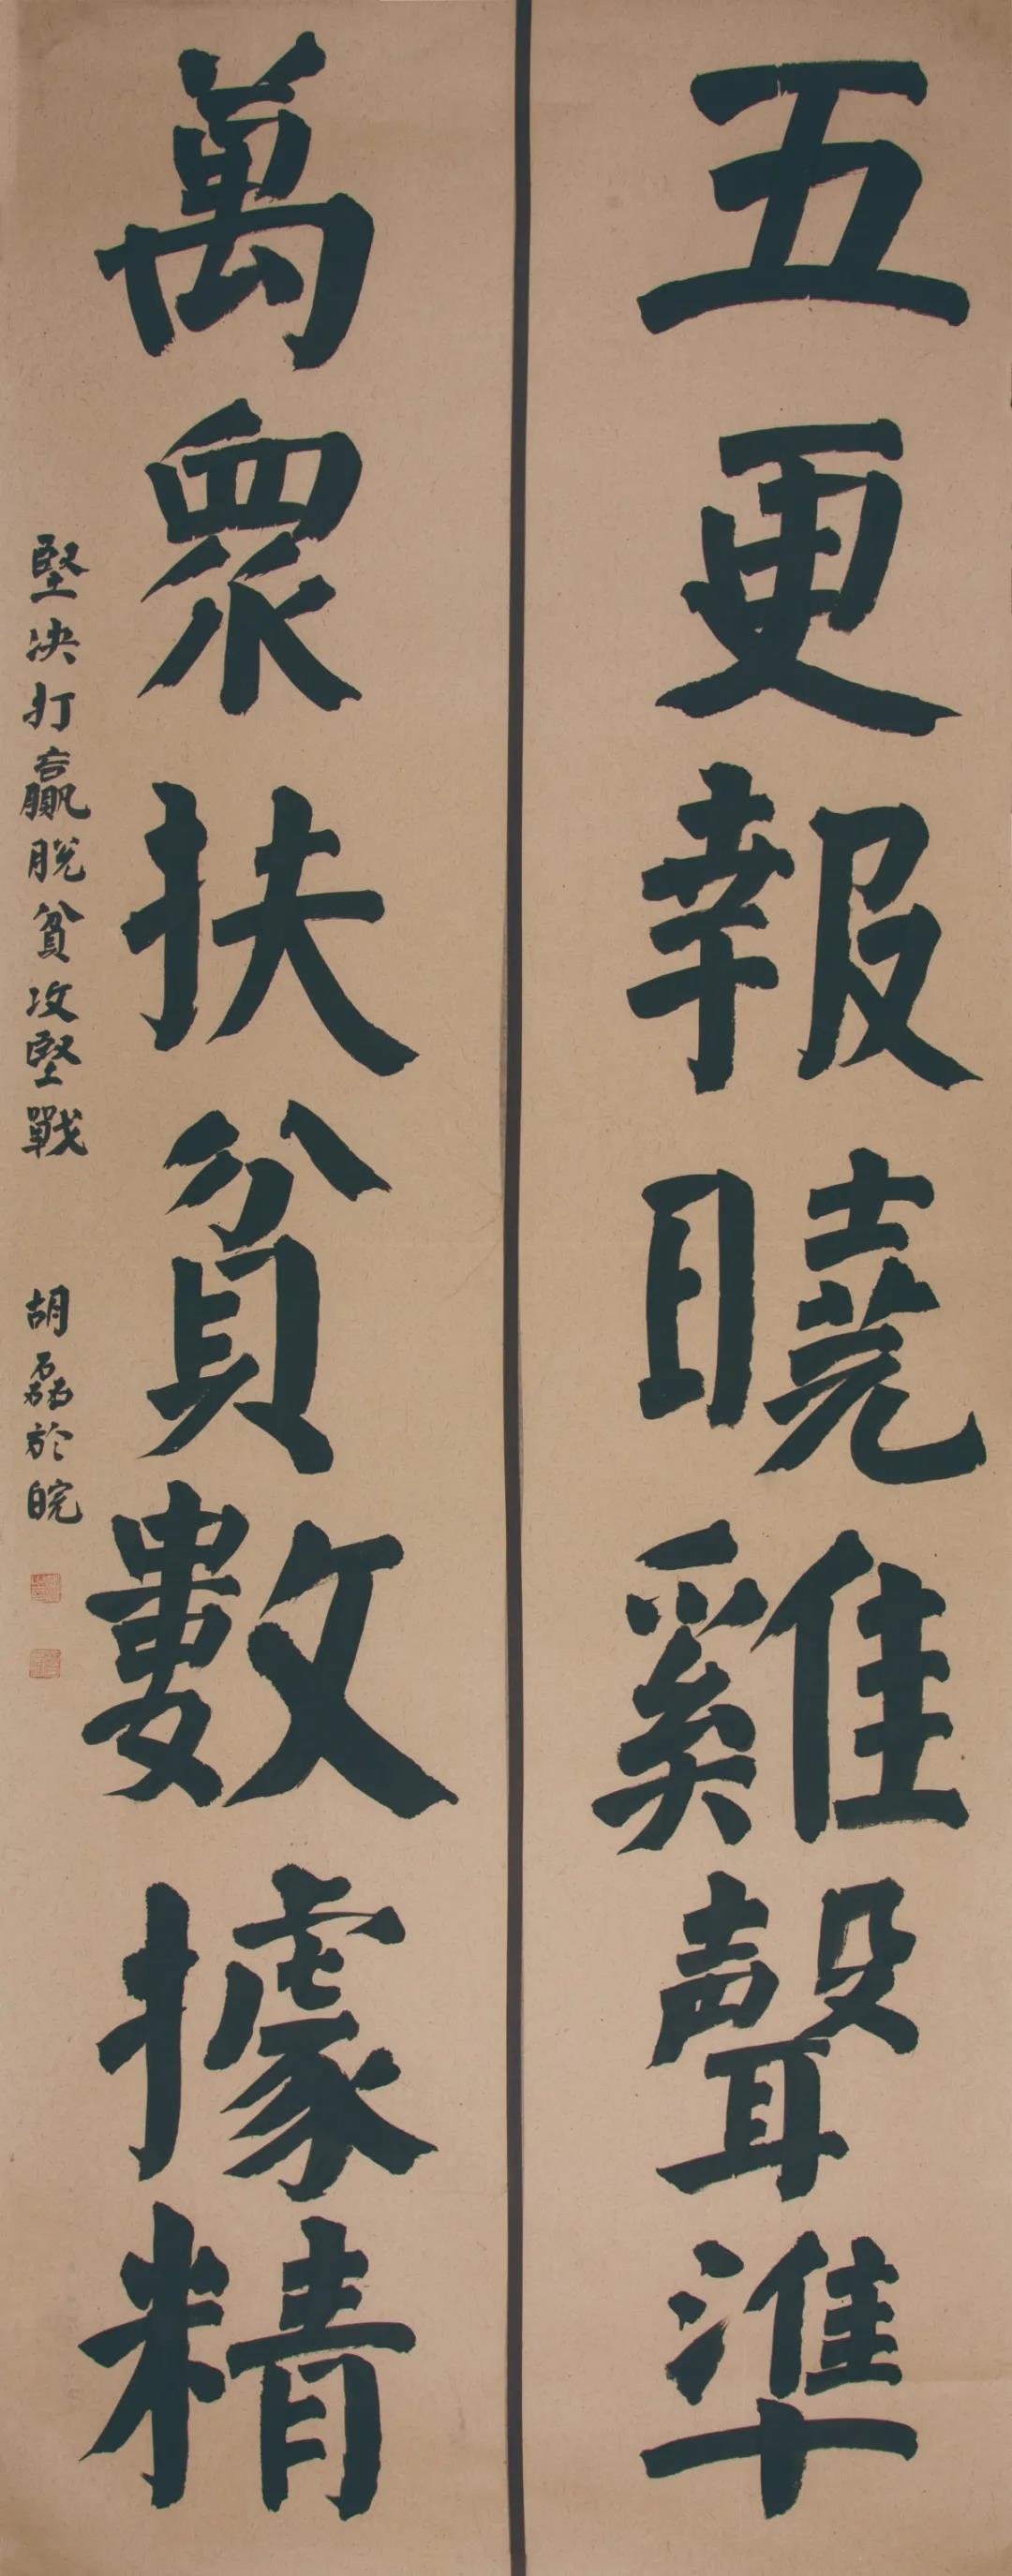 五更報曉雞聲準
萬衆扶貧數據精
堅决打贏脱貧攻堅戰
胡磊於皖